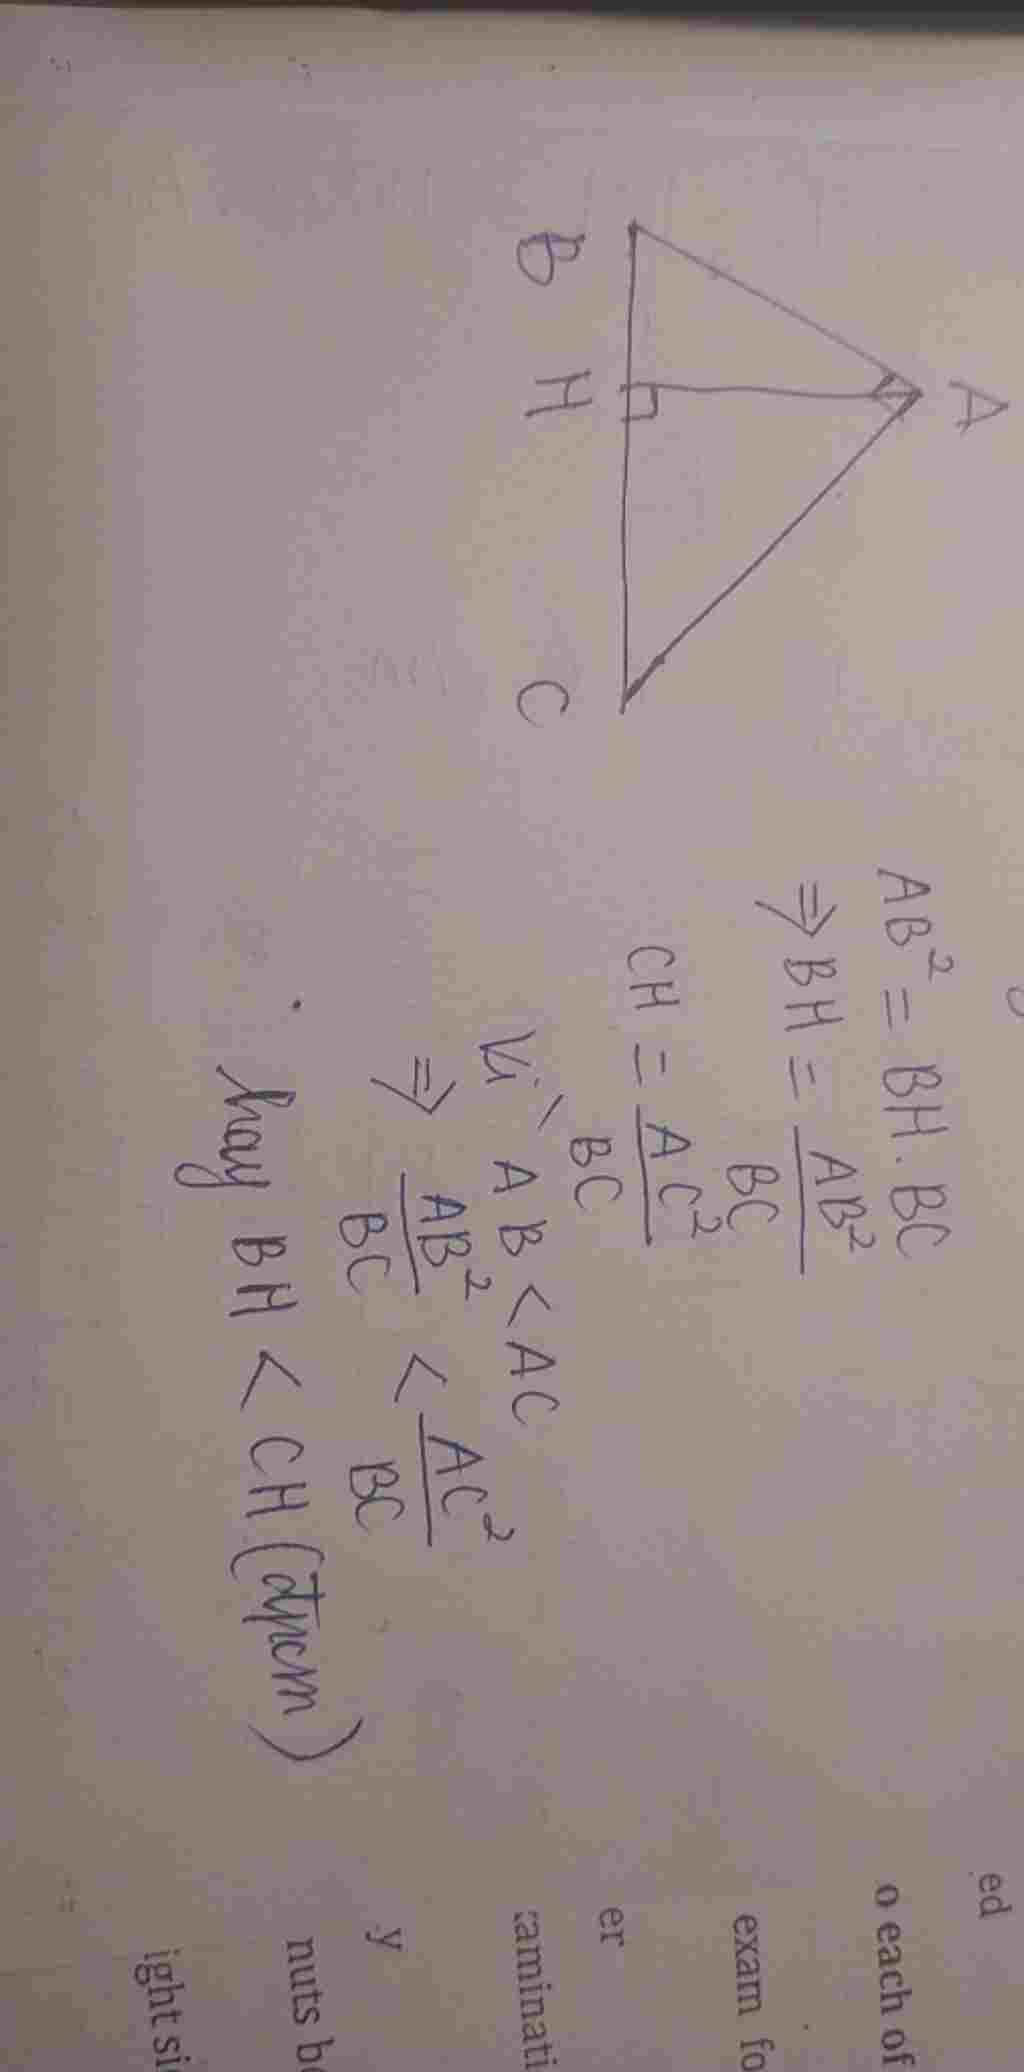 A
B
H
C
AB² = BH.BC
⇒ BH = AB²/BC
CH = AC²/BC
Vì AB < AC
⇒ AB²/BC < AC²/BC
hay BH < CH (đpcm)
ed
o each of
exam fo
er
aminati
y
nuts b
ight si